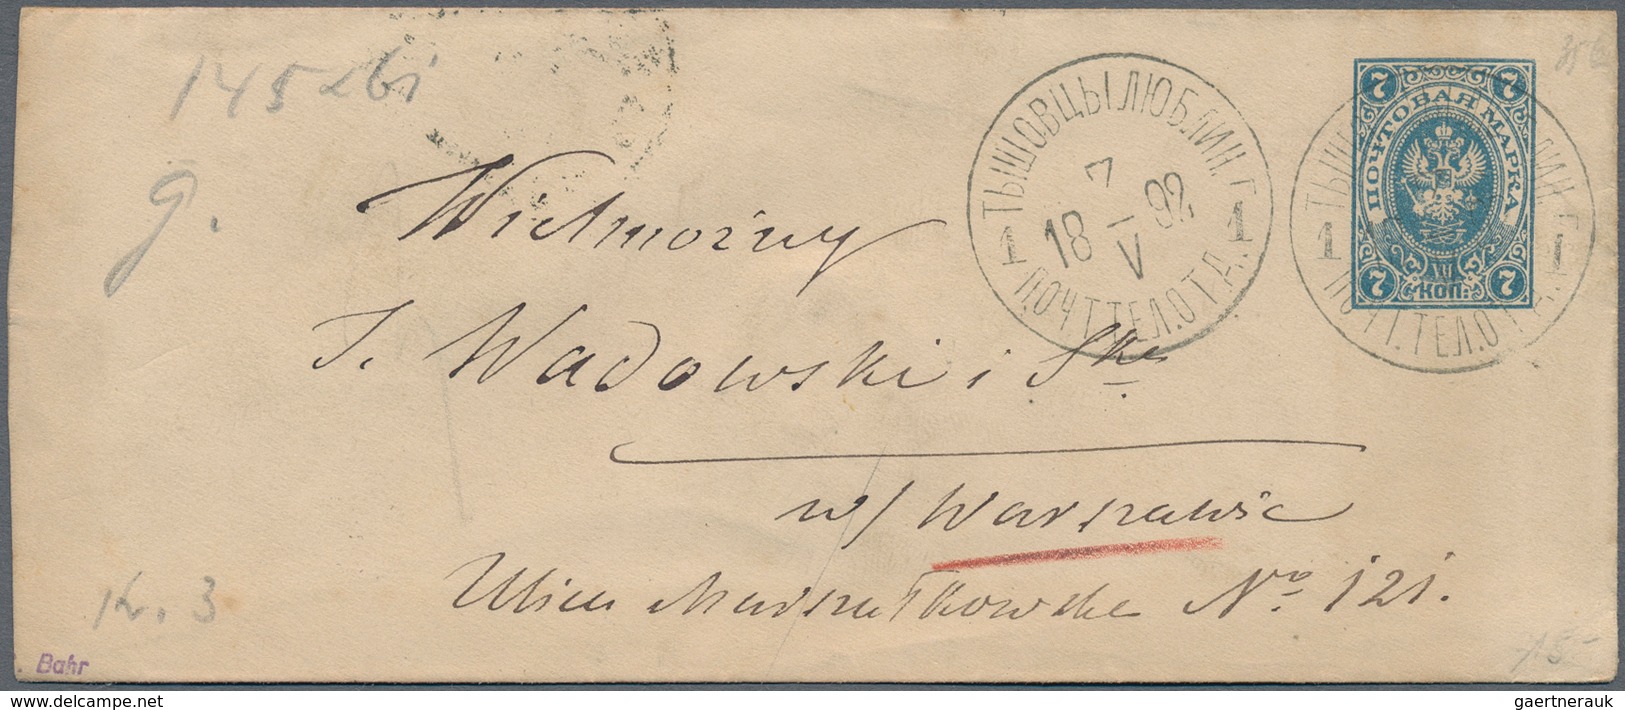 145
g.
ТЫШОВЦЫ ЛЮБЛИН. Г.
1 7 1
18 V 92
ПОЧТ. ТЕЛ. ОТД.
7 7
ПОЧТОВАЯ МАРКА
VII
7 КОП. 7
ТЫШ ЛИН. Г.
1 1
ПОЧТ. ТЕЛ. ОТ
Wielmożny
J. Wadowski i Ska
w/ Warszawie
Ulica Marszałkowska No 121.
Kr. 3
15-
Bahr
delcampe.net
gaertnerauk